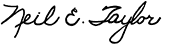 Neil E. Taylor